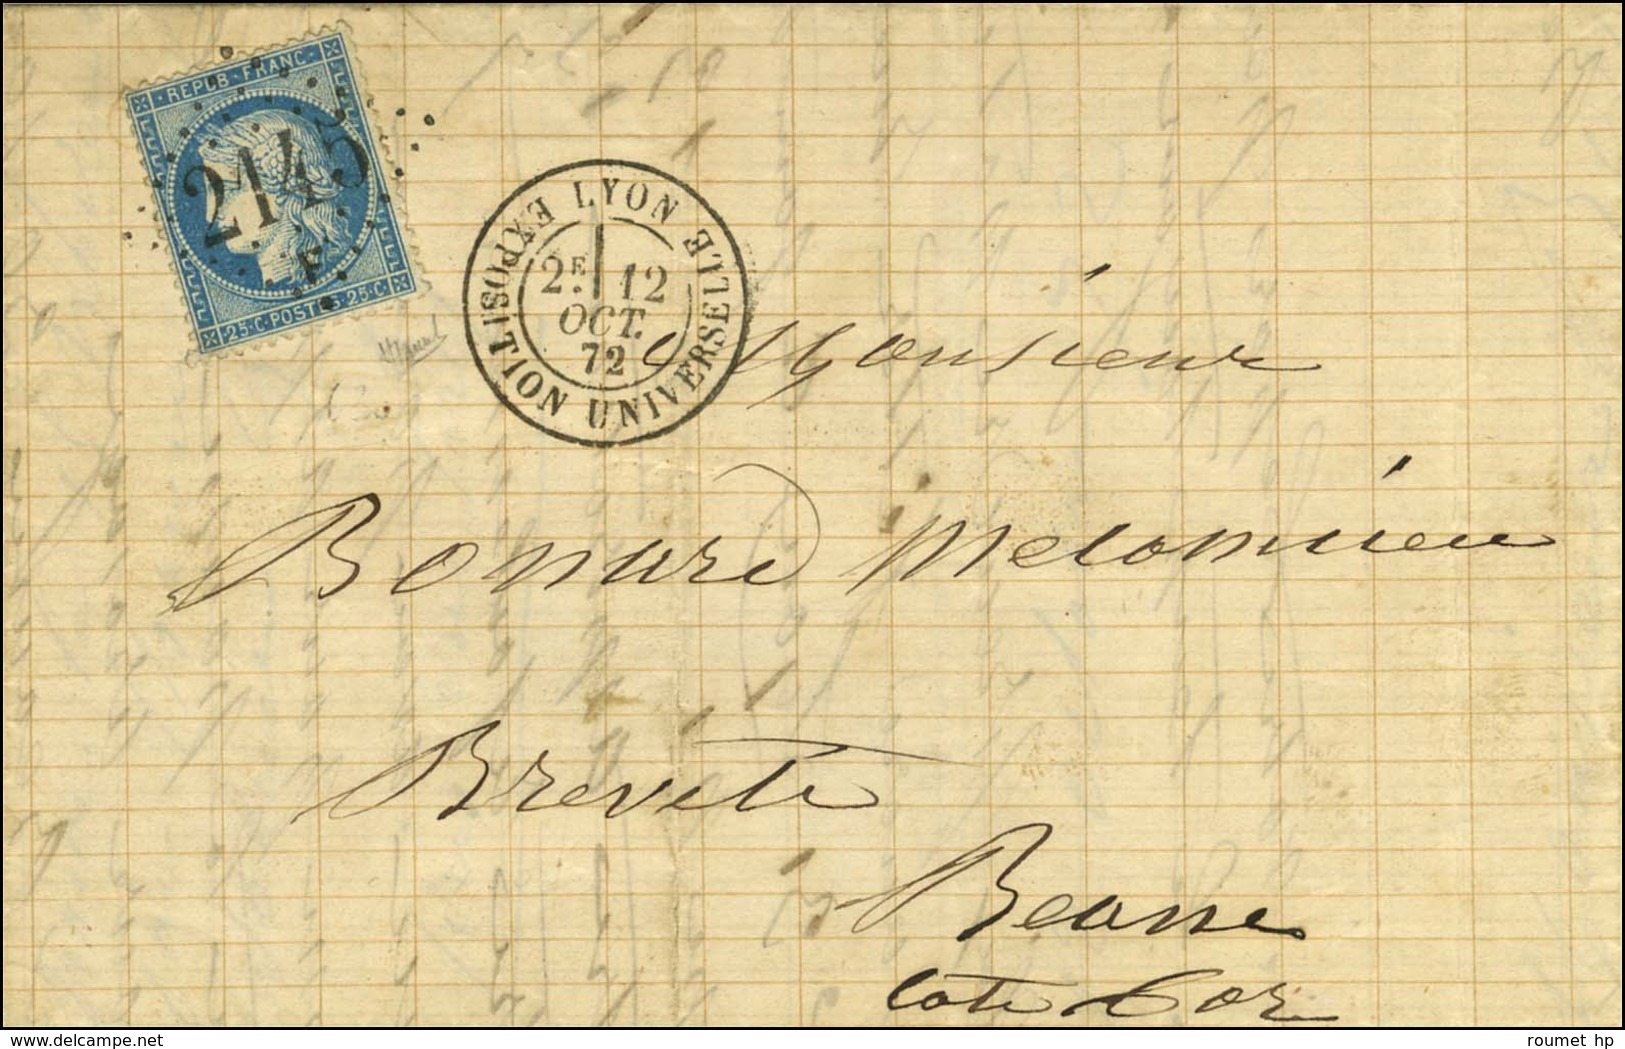 REPUB · FRANC ·
2145
F
· 25 · C · POSTES · 25 · C ·
LYON
EXPOSITION UNIVERSELLE
2E 12
OCT.
72
Monsieur
Bonard Mecanicien
Breveté
Beaune
Cote d'or
delcampe.net
roumet hp